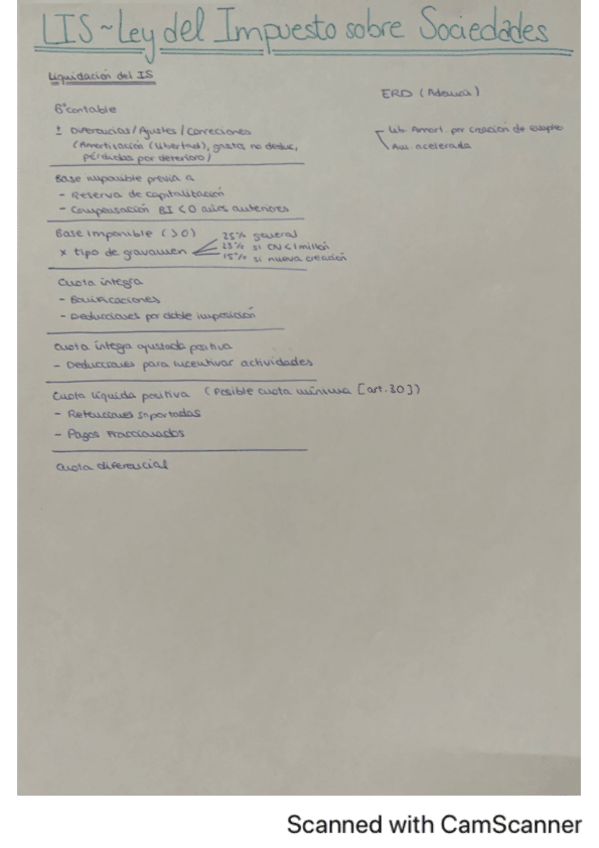 LIS ~ Ley del Impuesto sobre Sociedades
Liquidación del IS
Bº contable
± Diferencias / Ajustes / Correciones
(Amortización (libertad), gastos no deduc,
pérdidas por deterioro)
Base imponible previa a
- Reserva de capitalización
- Compensación BI < 0 años anteriores
Base imponible (>0)
x tipo de gravamen
25% general
23% si CN < 1 millón
15% si nueva creación
Cuota íntegra
- Bonificaciones
- Deducciones por doble imposición
Cuota íntegra ajustada positiva
- Deducciones para incentivar actividades
Cuota líquida positiva (Posible cuota mínima [art.30])
- Retenciones soportadas
- Pagos Fraccionados
Cuota diferencial
ERD (Además)
Lib. Amort. por creación de empleo
Am. acelerada
Scanned with CamScanner